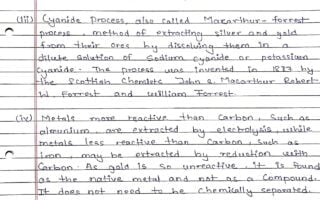 (iii) Cyanide Process, also called Macarthur-forrest
process, method of extracting silver and gold
from their ores by dissolving them in a
dilute solution of Sodium cyanide or potassium
cyanide. The process was invented in 1887 by
the Scottish Chemists John S. Macarthur Robert
W. Forrest and William Forrest.
(iv) Metals more reactive than Carbon, such as
almunium, are extracted by electrolysis, while
metals less reactive than Carbon, such as
iron, may be extracted by reduction with
Carbon. As gold is so unreactive, it is found
as the native metal and not as a Compound.
It does not need to be chemically separated.